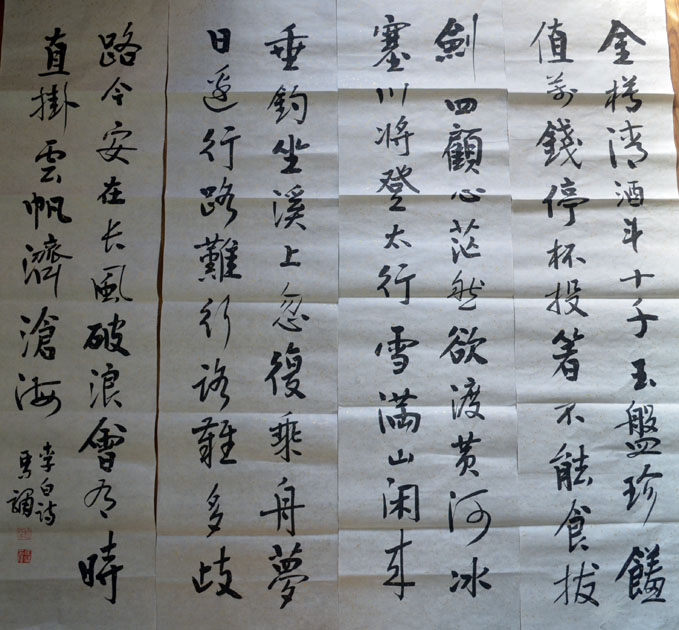 金樽清酒斗十千玉盤珍饈
值萬錢停杯投箸不能食拔
劍四顧心茫然欲渡黄河冰
塞川将登太行雪满山闲来
垂钓坐溪上忽復乘舟夢
日邊行路難行路難多歧
路今安在长風破浪會有時
直掛雲帆濟滄海
李白诗